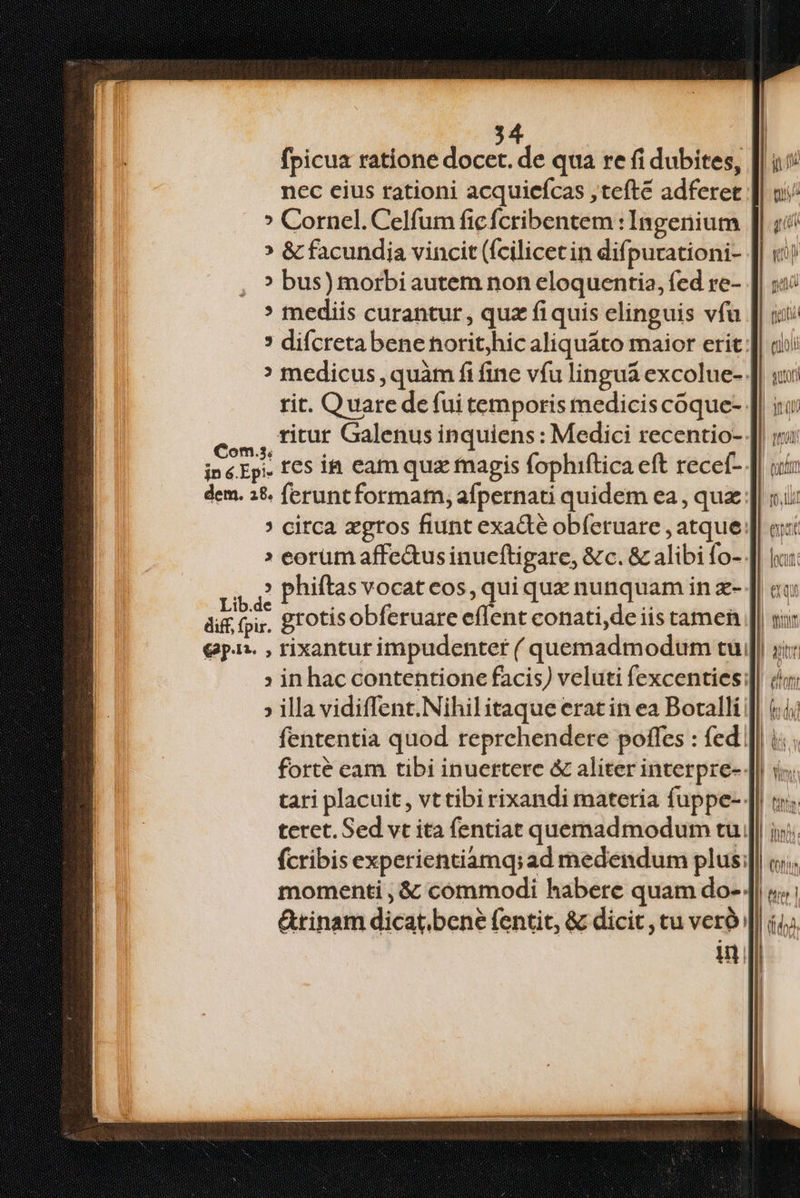 34
ſpicua ratione docet. de qua re ſi dubites,
nec eius rationi acquieſcas, teſtē adferet
» Cornel. Celſum ſic ſcribentem : Ingenium
» & facundia vincit (ſcilicet in diſputationi-
» bus) morbi autem non eloquentia, ſed re-
» mediis curantur, quæ ſi quis elinguis vſu
» diſcreta bene norit, hic aliquāto maior erit
» medicus, quàm ſi ſine vſu linguā excolue-
rit. Quare de ſui temporis medicis cōque-
ritur Galenus inquiens : Medici recentio-
Com.3.
in 6. Epi- res in eam quæ magis ſophiſtica eſt receſ-
dem. 28. ſerunt formam, aſpernati quidem ea, quæ
» circa ægros fiunt exactè obſeruare, atque
» eorum affectus inueſtigare, &c. & alibi ſo-
» phiſtas vocat eos, qui quæ nunquam in æ-
Lib. de
diff. ſpir. grotis obſeruare eſſent conati, de iis tamen
cap. 12. , rixantur impudenter ( quemadmodum tu
» in hac contentione facis) veluti ſexcenties
» illa vidiſſent. Nihil itaque erat in ea Botalli
ſententia quod reprehendere poſſes : ſed
fortè eam tibi inuertere & aliter interpre-
tari placuit, vt tibi rixandi materia ſuppe-
teret. Sed vt ita ſentiat quemadmodum tu
ſcribis experientiámq; ad medendum plus
momenti, & commodi habere quam do-
ctrinam dicat. benè ſentit, & dicit, tu verò
in